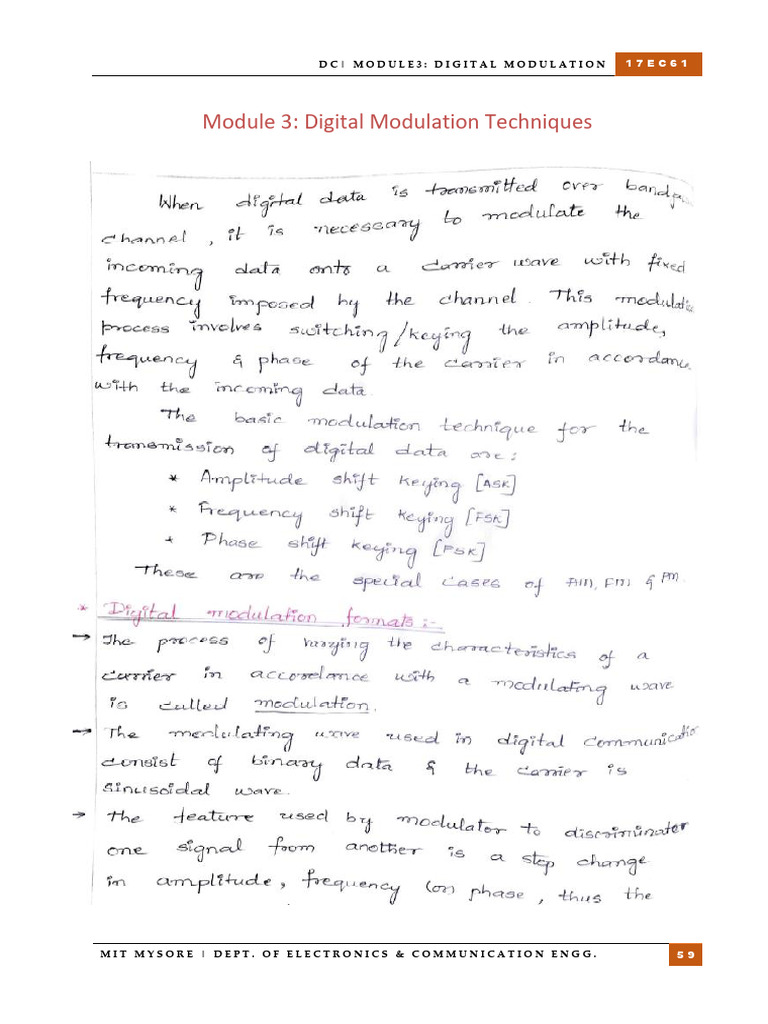 DC| MODULE3: DIGITAL MODULATION 17EC61
Module 3: Digital Modulation Techniques
When digital data is transmitted over bandpass
channel, it is necessary to modulate the
incoming data onto a carrier wave with fixed
frequency imposed by the channel. This modulation
process involves switching/keying the amplitude,
frequency & phase of the carrier in accordance
with the incoming data.
The basic modulation technique for the
transmission of digital data are:
* Amplitude shift keying [ASK]
* Frequency shift keying [FSK]
* Phase shift keying [PSK]
These are the special cases of AM, FM & PM.
* Digital modulation formats:-
→ The process of varying the characteristics of a
carrier in accordance with a modulating wave
is called modulation.
→ The modulating wave used in digital communication
consist of binary data & the carrier is
sinusoidal wave.
→ The feature used by modulator to discriminate
one signal from another is a step change
in amplitude, frequency (or) phase, thus the
MIT MYSORE | DEPT. OF ELECTRONICS & COMMUNICATION ENGG. 59